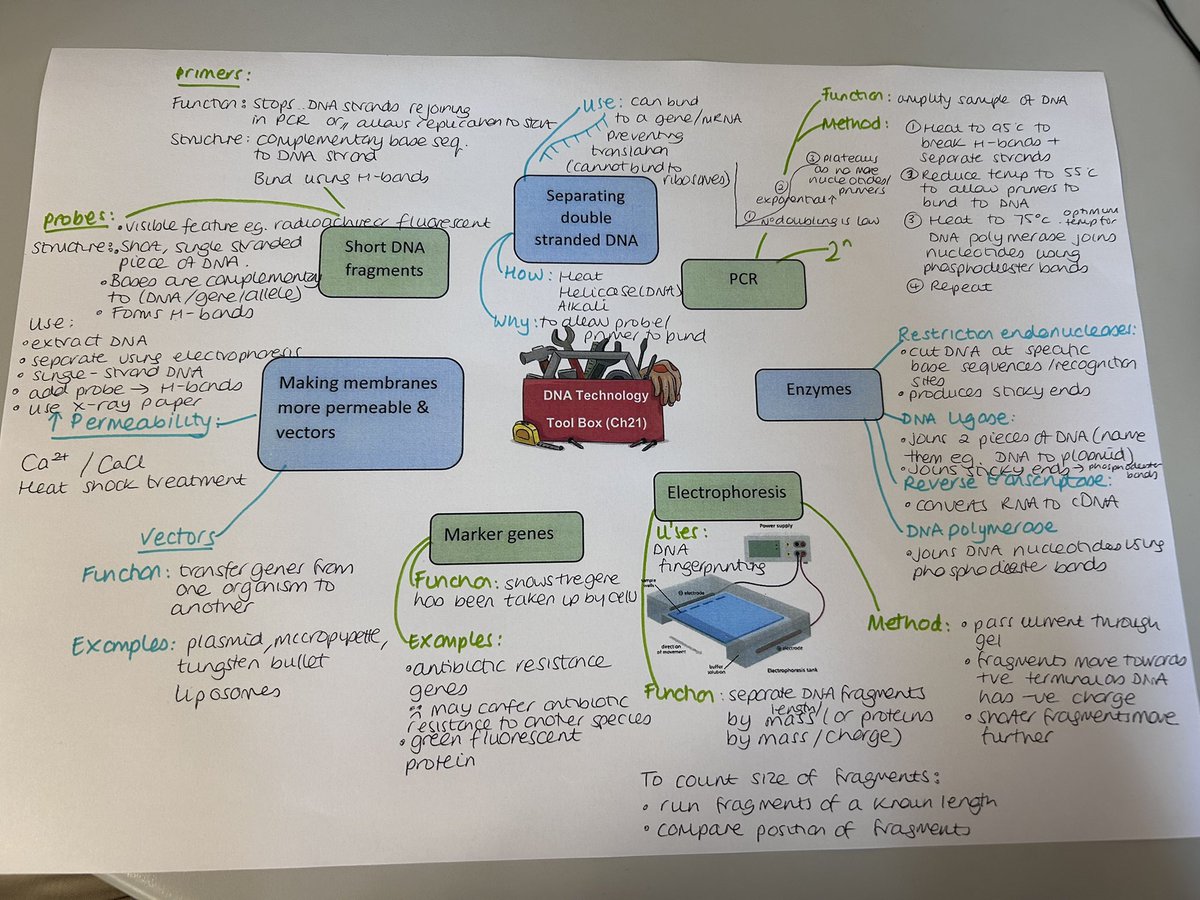 Primers:
Function: stops DNA strands rejoining
in PCR or,, allows replication to start
Structure: complementary base seq.
to DNA strand
Bind using H-bonds
Probes:
• visible feature eg. radioactive or fluorescent
Structure: • Short, single stranded
piece of DNA.
• Bases are complementary
to (DNA/gene/allele)
• Forms H-bonds
Use:
• extract DNA
• separate using electrophoresis
• single-strand DNA
• add probe → H-bonds
• use x-ray paper
Short DNA
fragments
Use: can bind
to a gene/mRNA
preventing
translation
(cannot bind to
ribosomes)
Separating
double
stranded DNA
How: Heat
Helicase (DNA)
Alkali
Why: to allow probe/
primer to bind
Function: amplify sample of DNA
Method: ① Heat to 95°c to
break H-bonds +
separate strands
② Reduce temp to 55°c
to allow primers to
bind to DNA
③ Heat to 75°c optimum
temp for
DNA polymerase joins
nucleotides using
phosphodiester bonds
④ Repeat
③ plateaus
as no more
nucleotides/
primers
②
exponential ↑
① No doubling is low
PCR
2ⁿ
Making membranes
more permeable &
vectors
↑ Permeability:
Ca²⁺ / CaCl
Heat shock treatment
Vectors
Function: transfer genes from
one organism to
another
Examples: plasmid, micropipette,
tungsten bullet
liposomes
DNA Technology
Tool Box (Ch21)
Enzymes
Restriction endonucleases:
• cut DNA at specific
base sequences/recognition
sites
• produces sticky ends
DNA ligase:
• joins 2 pieces of DNA (name
them eg. DNA to plasmid)
• Joins sticky ends → phosphodiester
bonds
Reverse transcriptase:
• converts RNA to cDNA
DNA polymerase
• joins DNA nucleotides using
phosphodiester bonds
Marker genes
Function: shows the gene
has been taken up by cell
Examples:
• antibiotic resistance
genes
may confer antibiotic
resistance to another species
• green fluorescent
protein
Electrophoresis
Uses:
DNA
fingerprinting
Power supply
sample
wells
electrode
direction
of movement
buffer
solution
electrode
Electrophoresis tank
Function: separate DNA fragments
length/
by mass (or proteins
by mass/charge)
Method: • pass current through
gel
• fragments move towards
+ve terminal as DNA
has -ve charge
• shorter fragments move
further
To count size of fragments:
• run fragments of a known length
• compare position of fragments